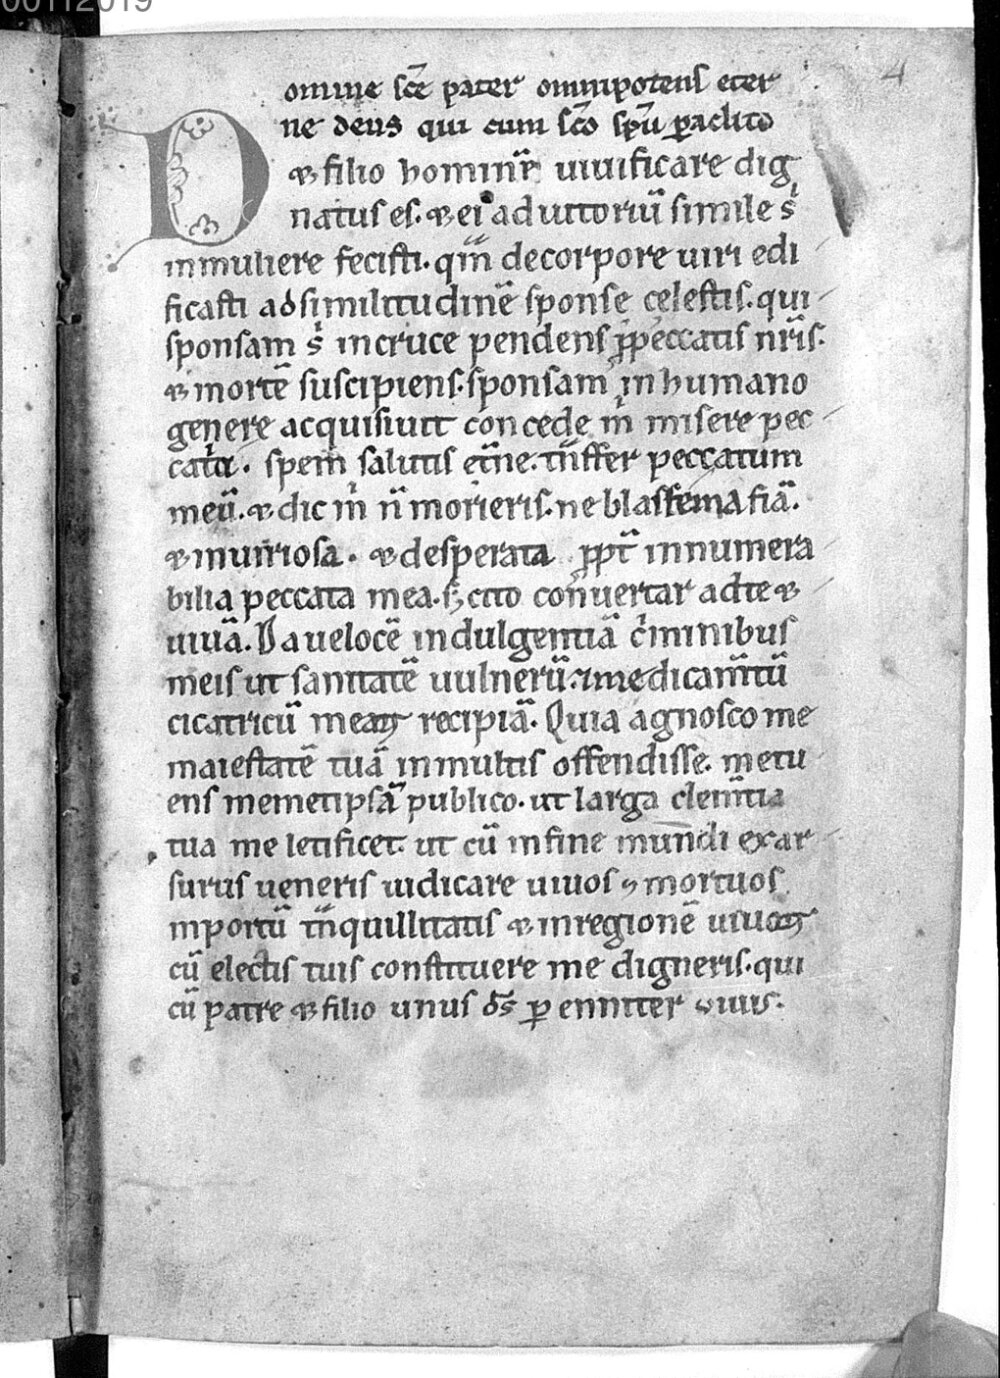 00112019
4
Domine sc̄e pater omnipotens eter
ne deus qui cum sc̄o sp̄u ꝑaclito
& filio hominē uiuificare dig
natus es. & ei adiutoriū simile s̉
in muliere fecisti. qm̄ de corpore uiri edi
ficasti ad similitudinē sponse celestis. qui
sponsam s̉ in cruce pendens ꝓ peccatis nr̄is.
& mortē suscipiens. sponsam in humano
genere acquisiuit concede m̉ misere pec
cat̉ci. spem salutis et̄ne. t̄nsfer peccatum
meū. & dic m̉ n̄ morieris. ne blasfema fiā.
& iniuriosa. & desperata ꝓpt̄ innumera
bilia peccata mea. sꝫ cito conuertar ad te &
uiuā. Da uelocē indulgentiā c̉minibus
meis ut sanitatē uulnerū. ⁊ medicam̄tū
cicatricū meaꝝ recipiā. Quia agnosco me
maiestatē tuā in multis offendisse. metu
ens memetipsā publico. ut larga clem̄tia
tua me letificet. ut cū in fine mundi exar
surus ueneris iudicare uiuos ⁊ mortuos
in portū t̄nquillitatis & in regionē uiuoꝝ
cū electis tuis constituere me digneris. qui
cū patre & filio unus d̄s ꝑ enniter uiuis.